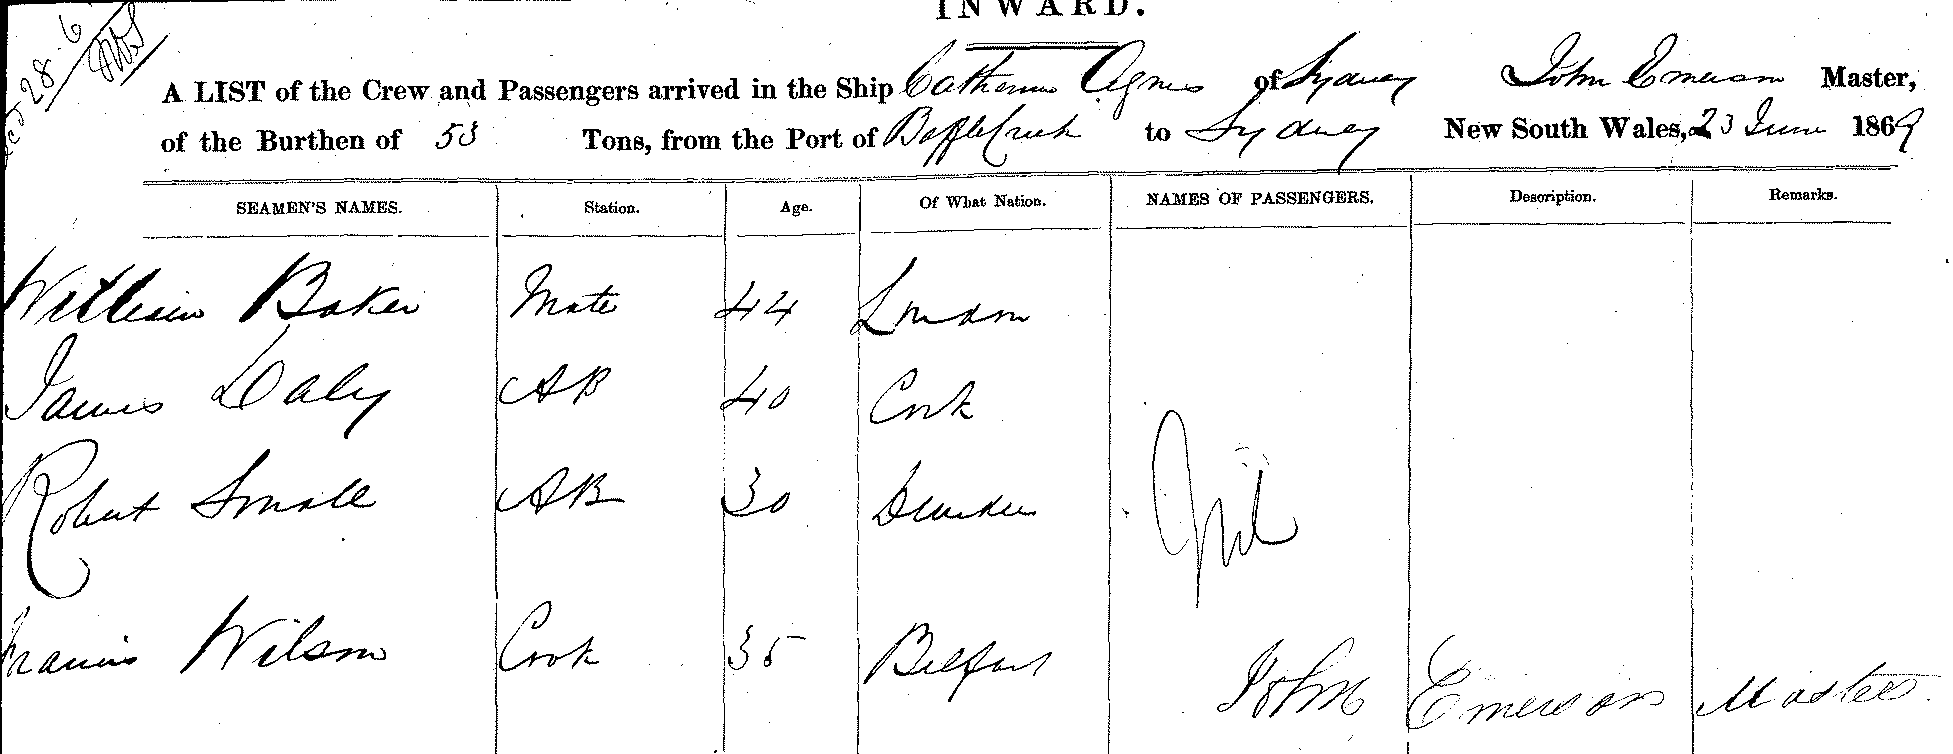 INWARD.
28.6
A LIST of the Crew and Passengers arrived in the Ship Catherine Agnes of Sydney John Emerson Master,
of the Burthen of 53 Tons, from the Port of Baffle Creek to Sydney New South Wales, 23 June 1869
SEAMEN'S NAMES. Station. Age. Of What Nation. NAMES OF PASSENGERS. Description. Remarks.
William Baker Mate 44 London
James Daly AB 40 Cork
Robert Small AB 30 Dundee
Nil
Francis Wilson Cook 35 Belfast
John Emerson Master